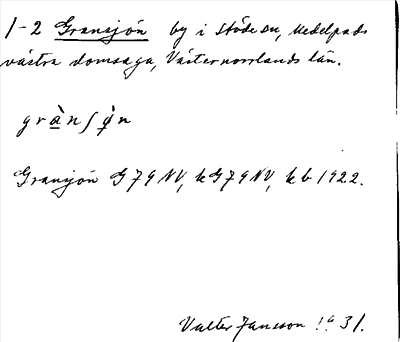 1-2 Gransjön by i Stöde sn, Medelpads
västra domsaga, Västernorrlands län.
grànʃø̀n
Gransjön G79NV, kG79NV, kb 1922.
Valter Jansson 1/4 31.